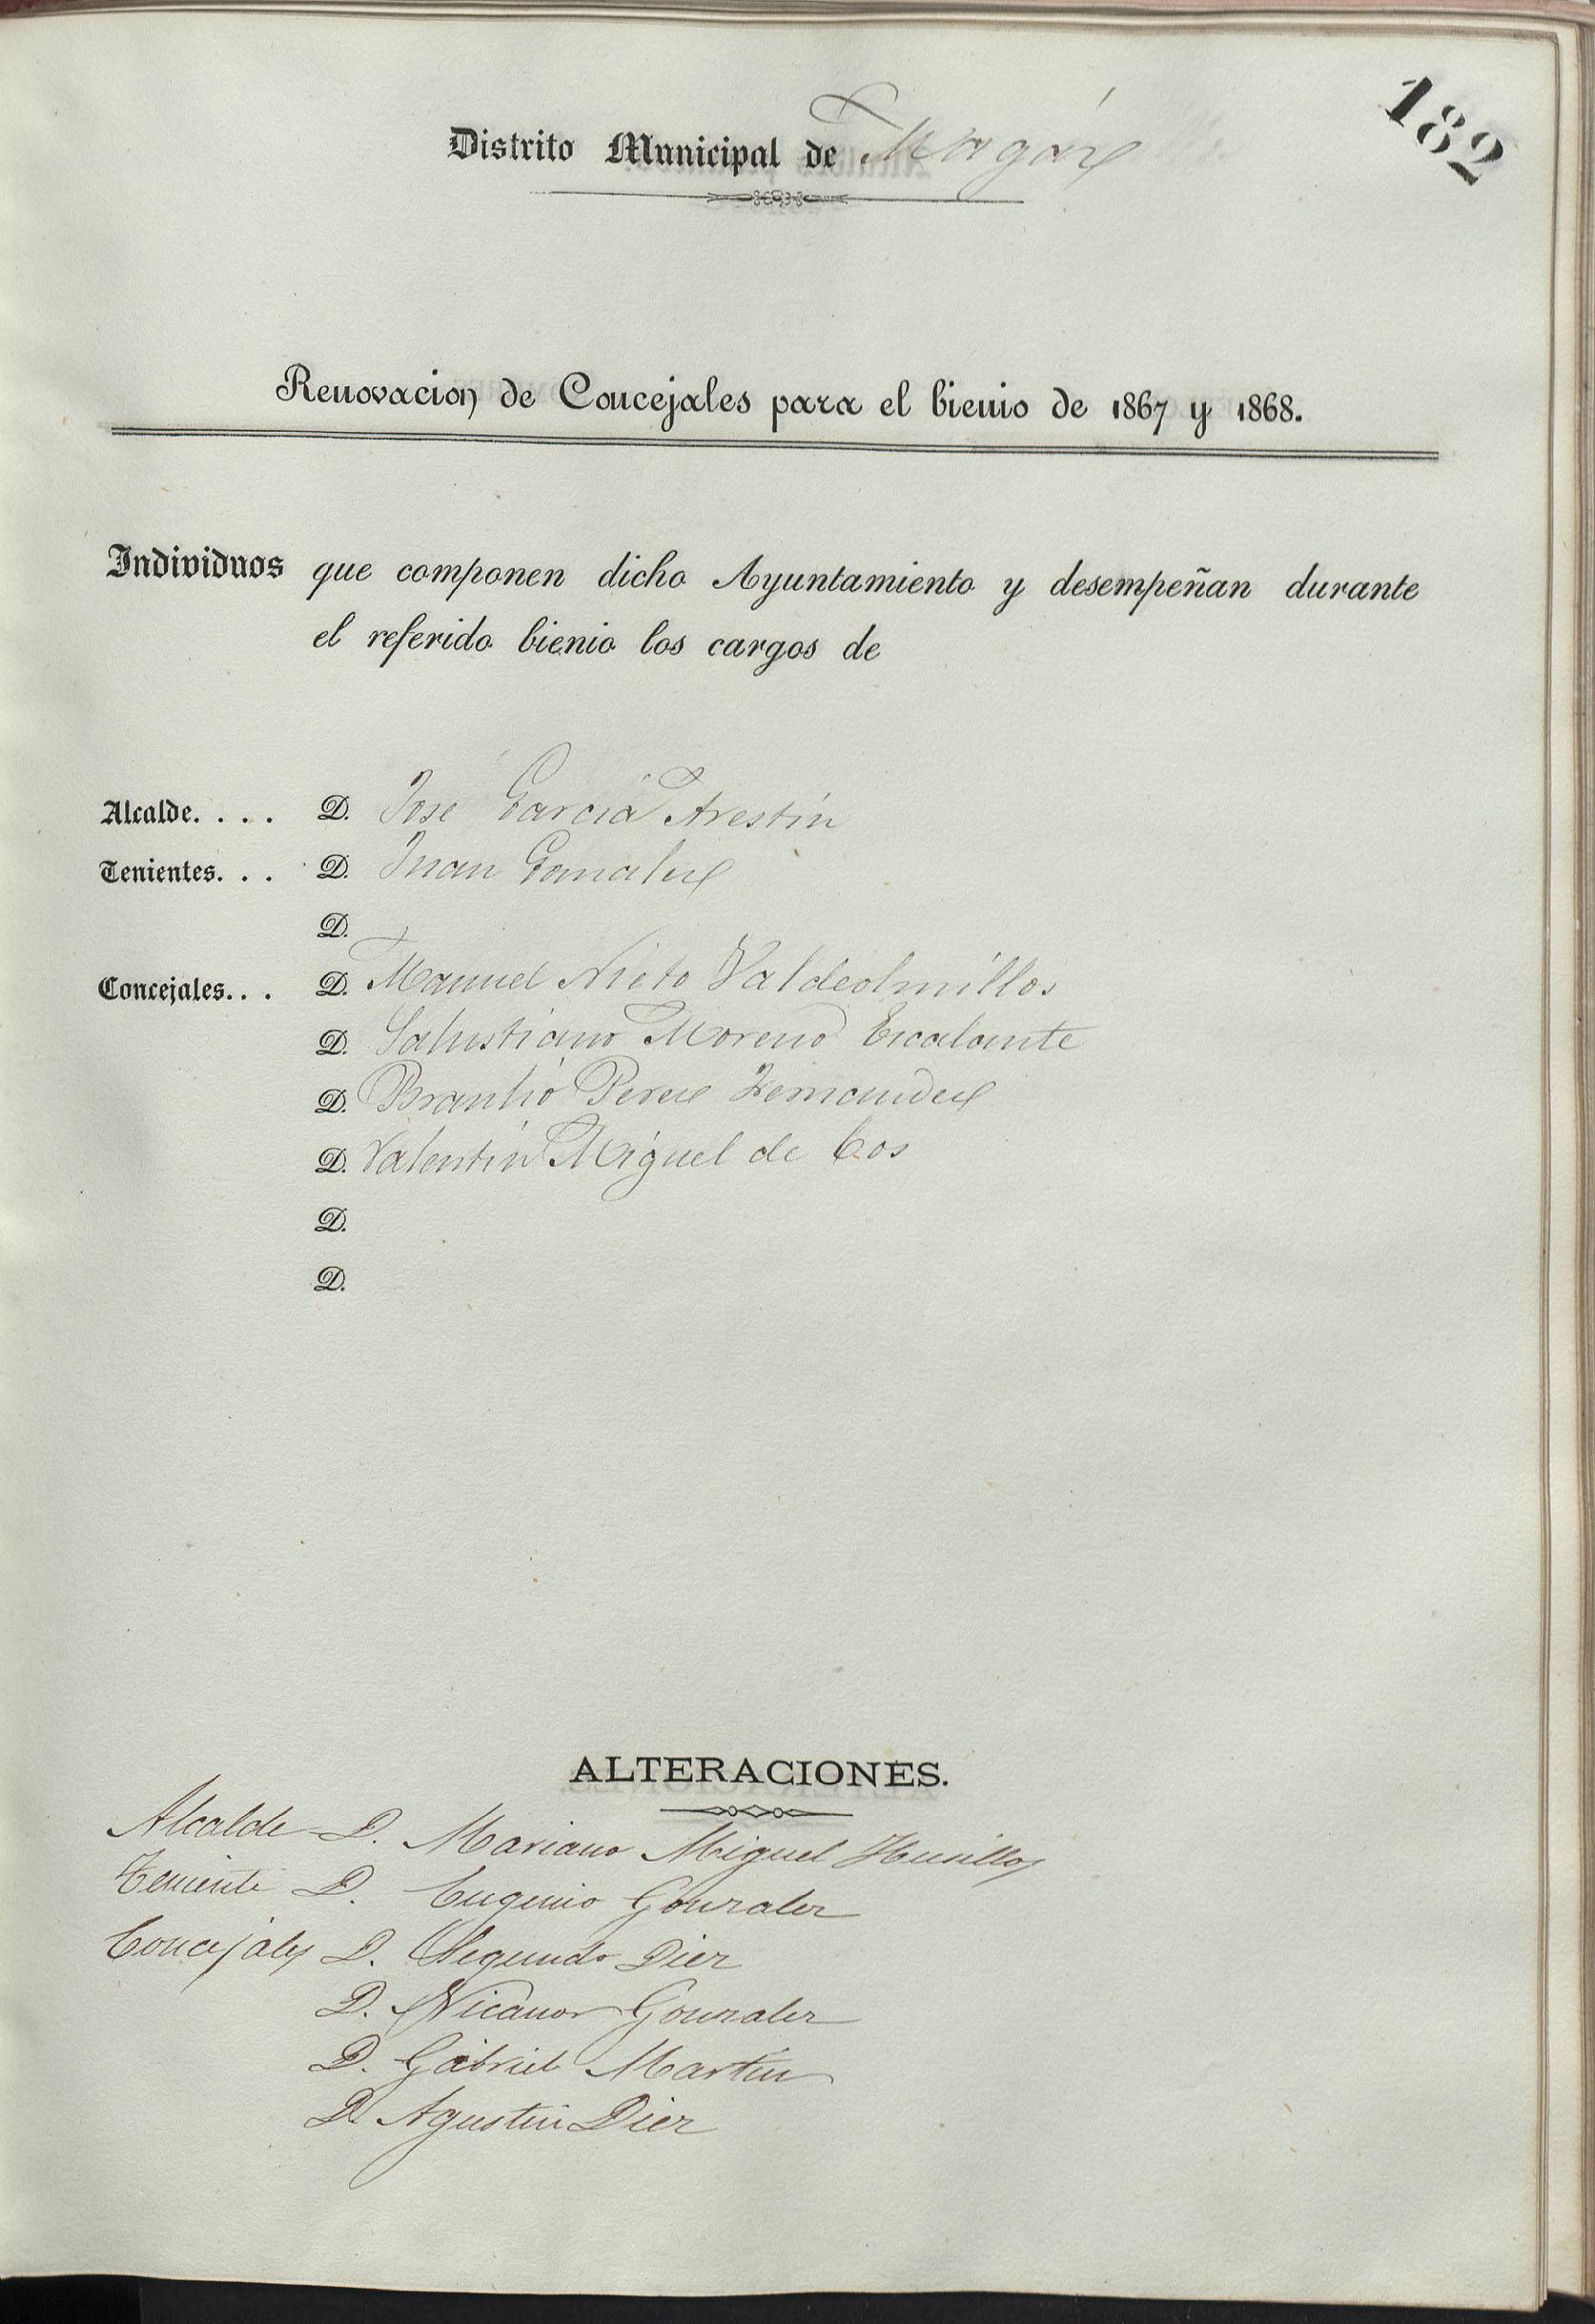 182
Distrito Municipal de Magáz
Renovacion de Concejales para el bienio de 1867 y 1868.
Individuos que componen dicho Ayuntamiento y desempeñan durante
el referido bienio los cargos de
Alcalde. . . . D. José García Arestín
Tenientes. . . D. Juan Gonzalez
D.
Concejales. . . D. Manuel Nieto Valdeolmillos
D. Salustiano Moreno Escalante
D. Braulio Perez Fernandez
D. Valentín Miguel de Cos
D.
D.
ALTERACIONES.
Alcalde D. Mariano Miguel Husillos
Teniente D. Eugenio Gonzalez
Concejales D. Segundo Diez
D. Nicanor Gonzalez
D. Gabriel Martin
D. Agustin Diez